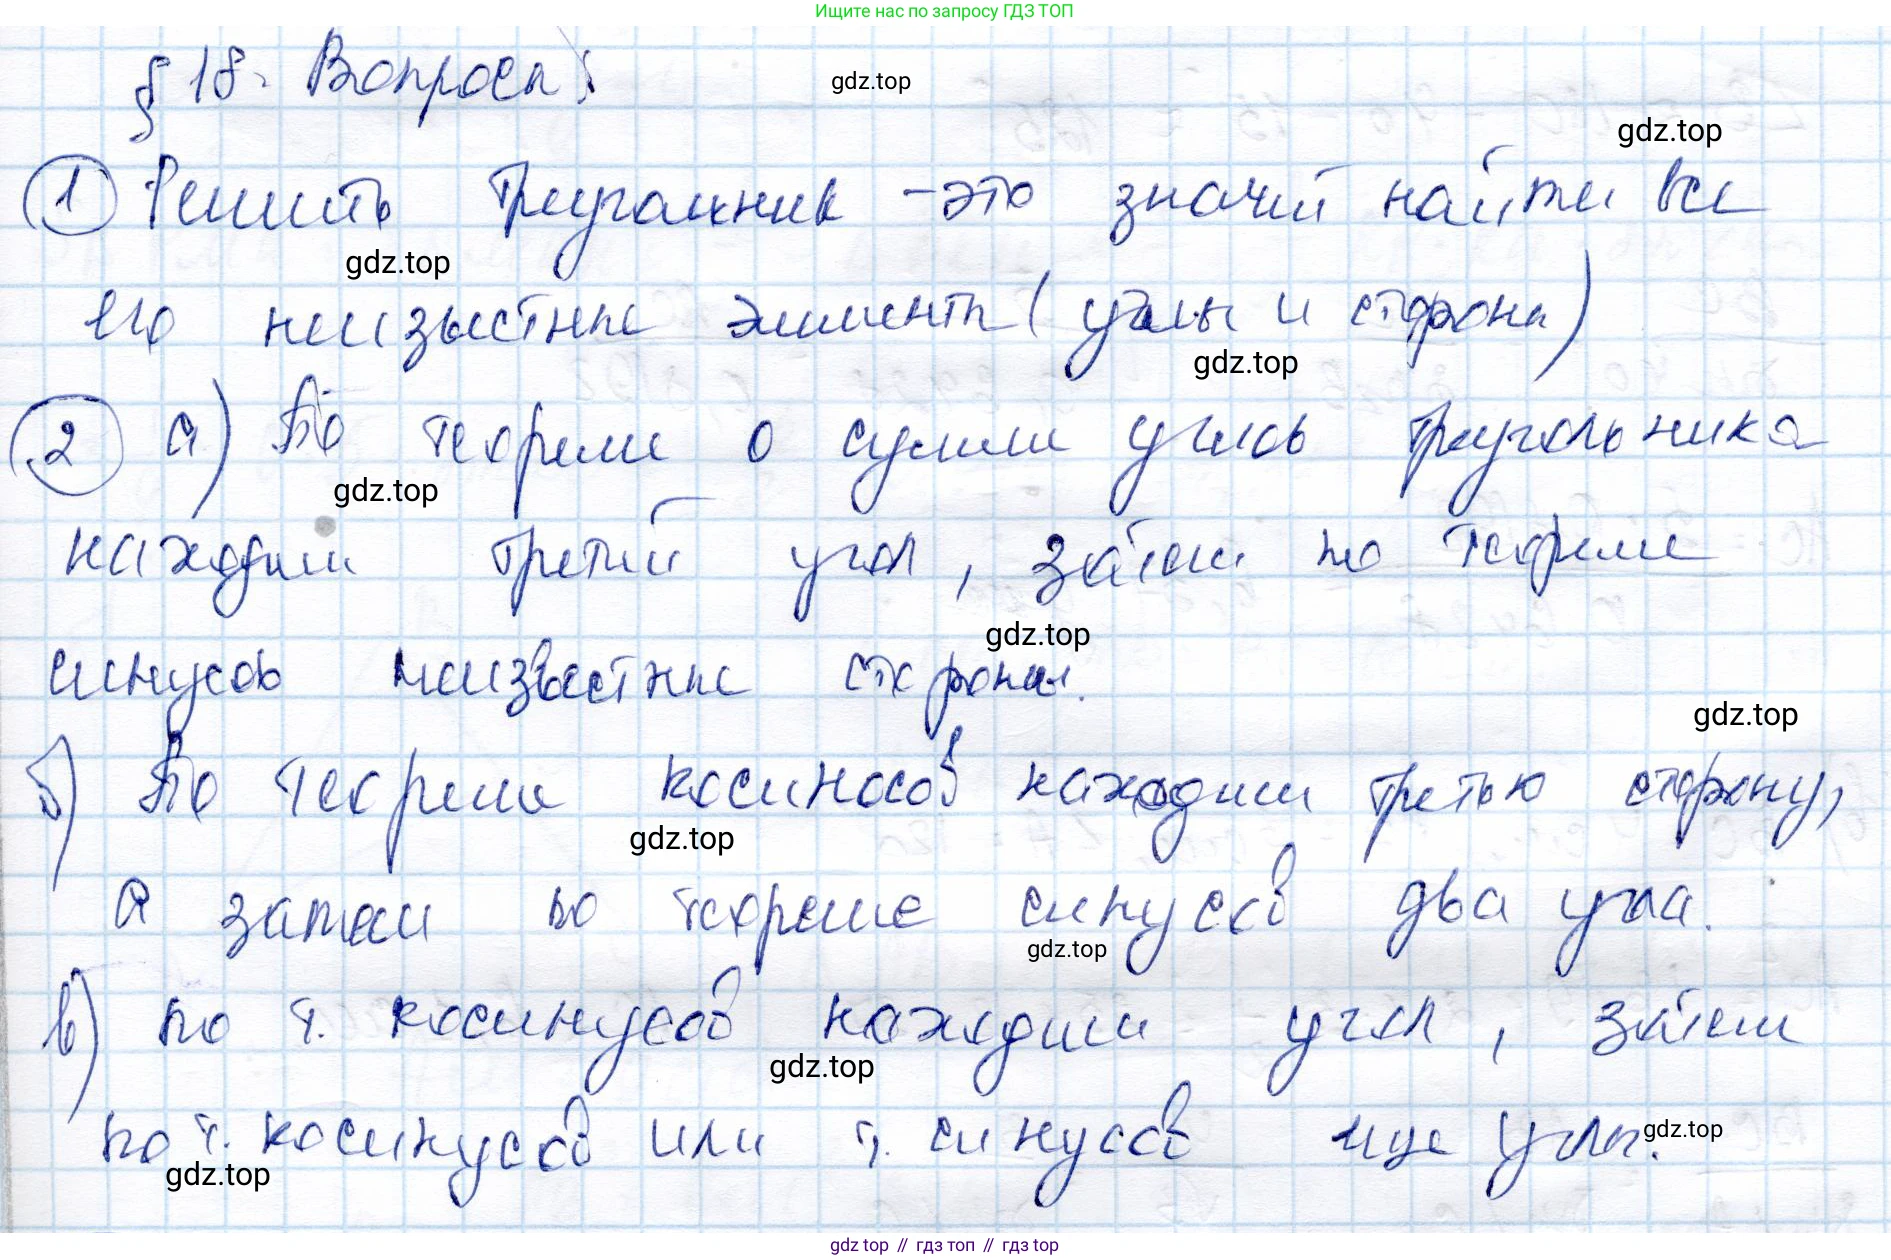 Ищите нас по запросу ГДЗ ТОП
§ 18. Вопросы:
gdz.top
gdz.top
1 Решить треугольник - это значит найти все
gdz.top
его неизвестные элементы (углы и стороны)
gdz.top
2 а) По теореме о сумме углов треугольника
gdz.top
находим третий угол, затем по теореме
gdz.top
синусов неизвестные стороны.
gdz.top
б) По теореме косинусов находим третью сторону,
gdz.top
а затем по теореме синусов два угла.
gdz.top
в) по т. косинусов находим угол, затем
gdz.top
по т. косинусов или т. синусов еще углы.
gdz.top
gdz.top
gdz top // гдз топ // гдз top